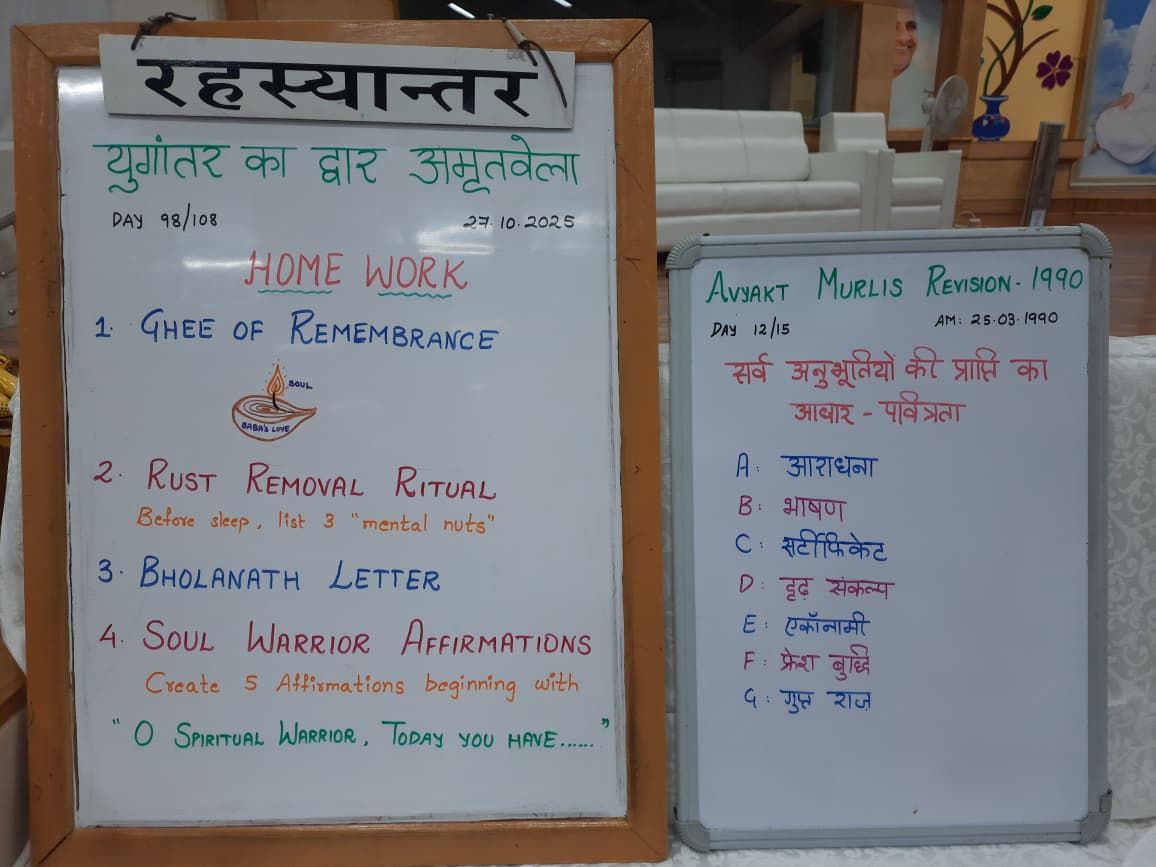 रहस्यान्तर
युगांतर का द्वार अमृतवेला
DAY 98/108 27.10.2025
HOME WORK
1. GHEE OF REMEMBRANCE
SOUL
BABA'S LOVE
2. RUST REMOVAL RITUAL
Before sleep, list 3 "mental nuts"
3. BHOLANATH LETTER
4. SOUL WARRIOR AFFIRMATIONS
Create 5 Affirmations beginning with
"O SPIRITUAL WARRIOR, TODAY YOU HAVE......"
AVYAKT MURLIS REVISION - 1990
DAY 12/15 AM: 25.03.1990
सर्व अनुभूतियों की प्राप्ति का
आधार - पवित्रता
A: आराधना
B: भाषण
C: सर्टीफिकेट
D: दृढ़ संकल्प
E: एकॉनामी
F: फ्रेश बुद्धि
G: गुप्त राज़